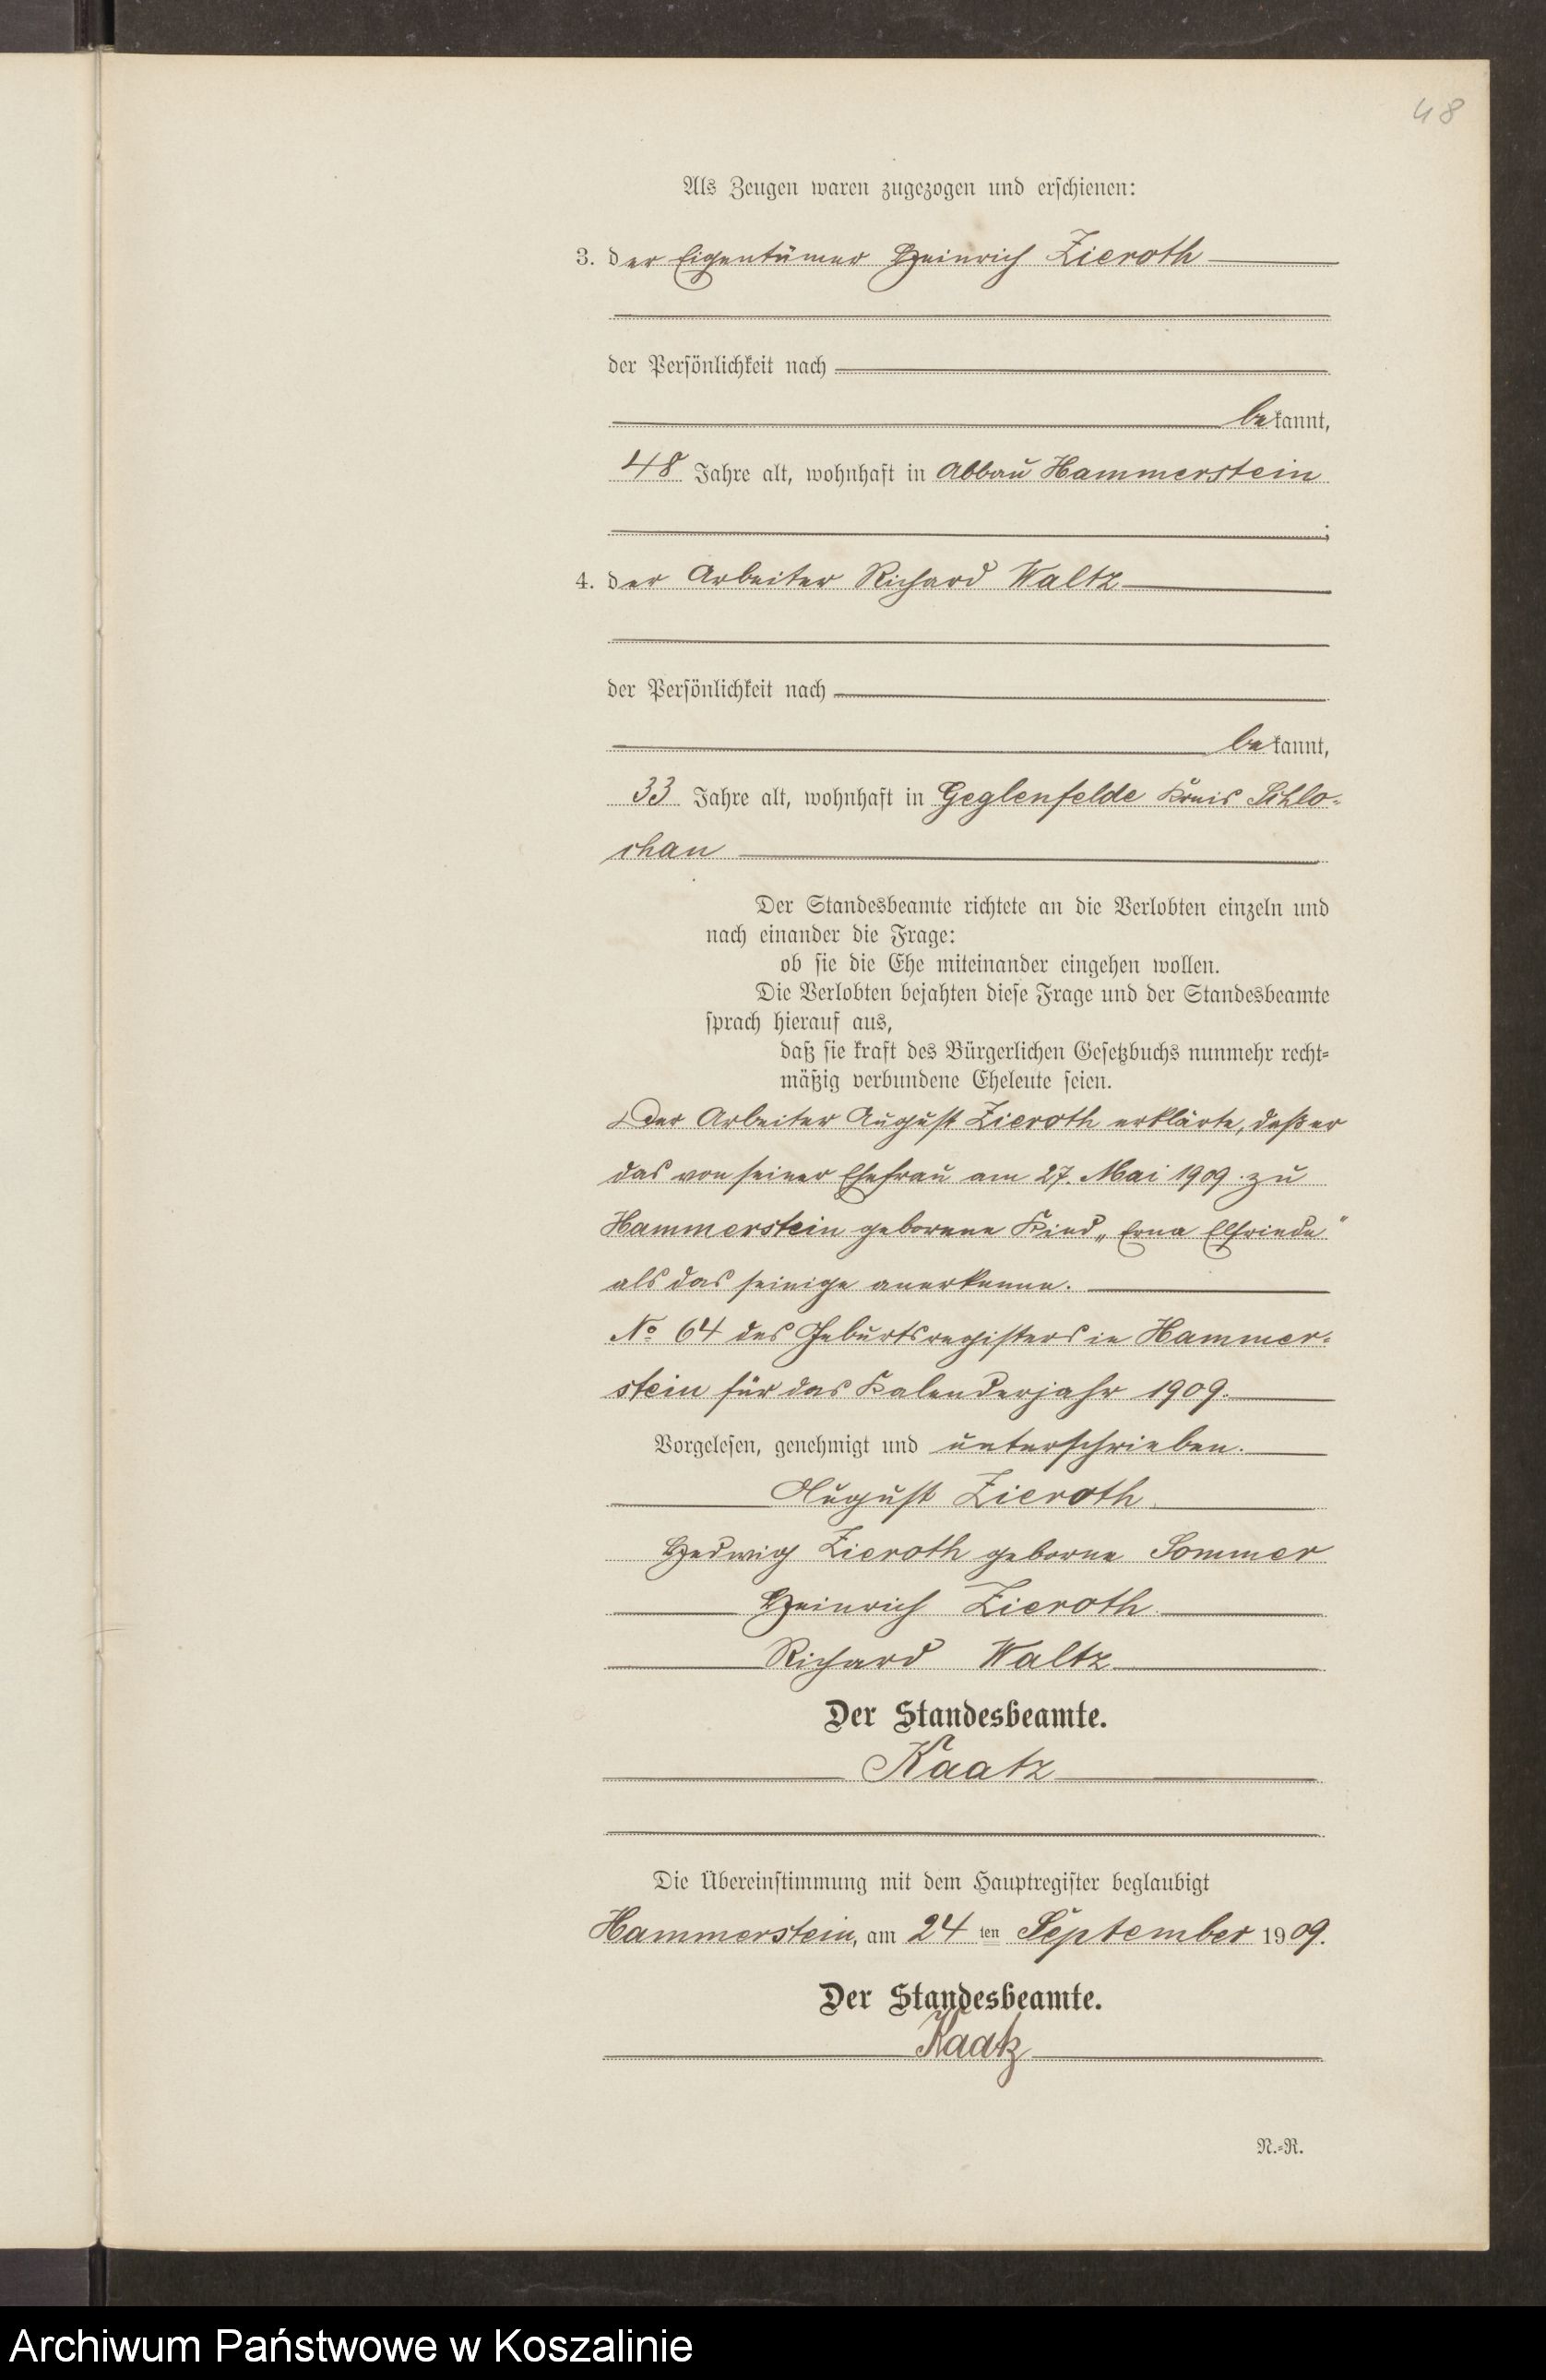 48
Als Zeugen waren zugezogen und erschienen:
3. der Eigentümer Heinrich Zieroth
der Persönlichkeit nach
bekannt,
48 Jahre alt, wohnhaft in Abbau Hammerstein
;
4. der Arbeiter Richard Waltz
der Persönlichkeit nach
bekannt,
33 Jahre alt, wohnhaft in Geglenfelde Kreis Schlo-
chau
Der Standesbeamte richtete an die Verlobten einzeln und
nach einander die Frage:
ob sie die Ehe miteinander eingehen wollen.
Die Verlobten bejahten diese Frage und der Standesbeamte
sprach hierauf aus,
daß sie kraft des Bürgerlichen Gesetzbuchs nunmehr recht-
mäßig verbundene Eheleute seien.
Der Arbeiter August Zieroth erklärte, daß er
das von seiner Ehefrau am 27. Mai 1909 zu
Hammerstein geborene Kind „Erna Elfriede"
als das seinige anerkenne.
No 64 des Geburtsregisters in Hammer-
stein für das Kalenderjahr 1909.
Vorgelesen, genehmigt und unterschrieben.
August Zieroth
Hedwig Zieroth geborne Sommer
Heinrich Zieroth
Richard Waltz
Der Standesbeamte.
Kaatz
Die Übereinstimmung mit dem Hauptregister beglaubigt
Hammerstein, am 24 ten September 1909.
Der Standesbeamte.
Kaatz
N.-R.
Archiwum Państwowe w Koszalinie